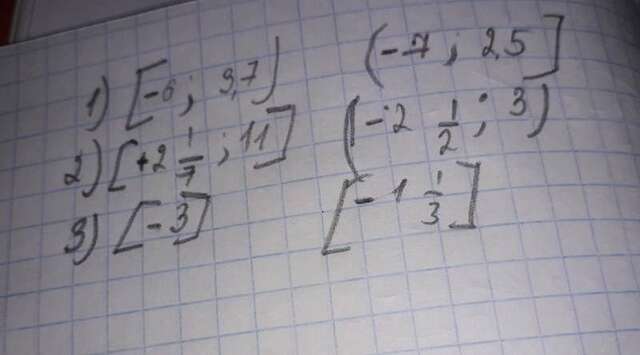 1) [-6; 9,7) (-7; 2,5]
2) [+2 1/7; 11] (-2 1/2; 3)
3) [-3] [-1 1/3]